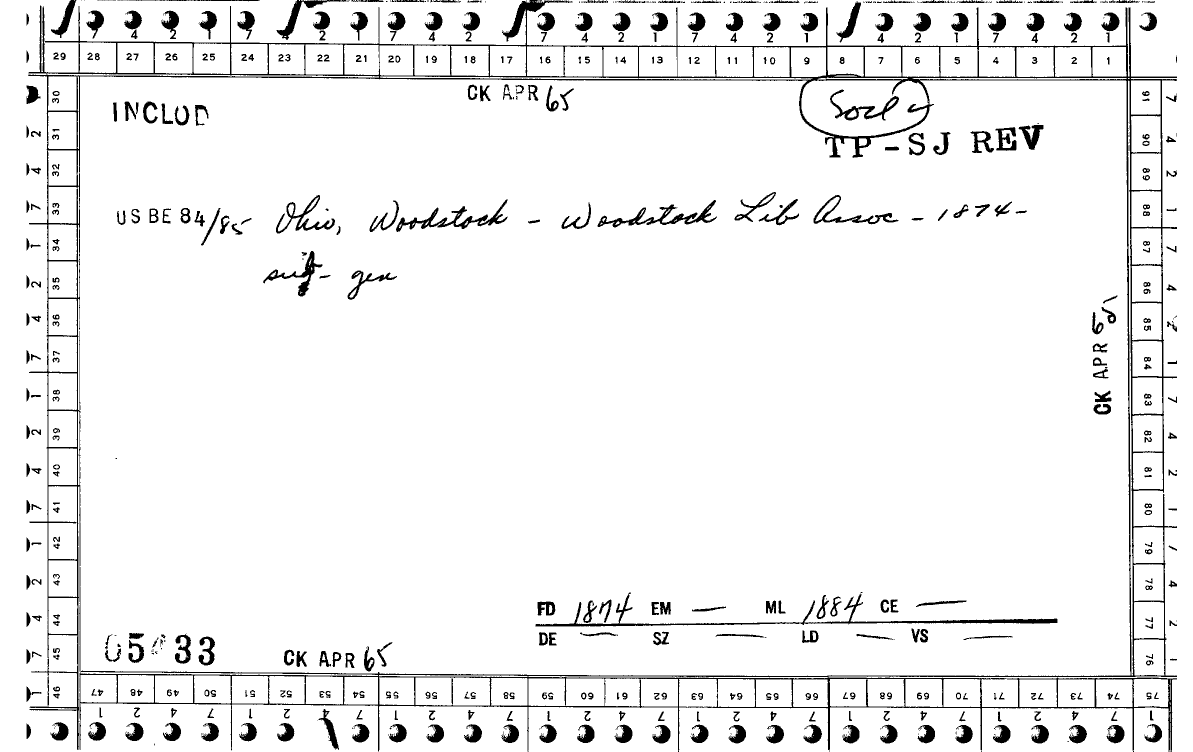 7 4 2 1 7 4 2 1 7 4 2 1 7 4 2 1 7 4 2 1 7 4 2 1 7 4 2 1
29 28 27 26 25 24 23 22 21 20 19 18 17 16 15 14 13 12 11 10 9 8 7 6 5 4 3 2 1
CK APR 65
INCLUD
TP-SJ REV
US BE 84/85 Ohio, Woodstock - Woodstock Lib Assoc - 1874-
gen
CK APR 65
FD 1874 EM — ML 1884 CE —
DE — SZ — LD — VS —
33
CK APR 65
30 31 32 33 34 35 36 37 38 39 40 41 42 43 44 45 46
91 90 89 88 87 86 85 84 83 82 81 80 79 78 77 76
47 48 49 50 51 52 53 54 55 56 57 58 59 60 61 62 63 64 65 66 67 68 69 70 71 72 73 74 75
1 2 4 7 1 2 4 7 1 2 4 7 1 2 4 7 1 2 4 7 1 2 4 7 1 2 4 7 1